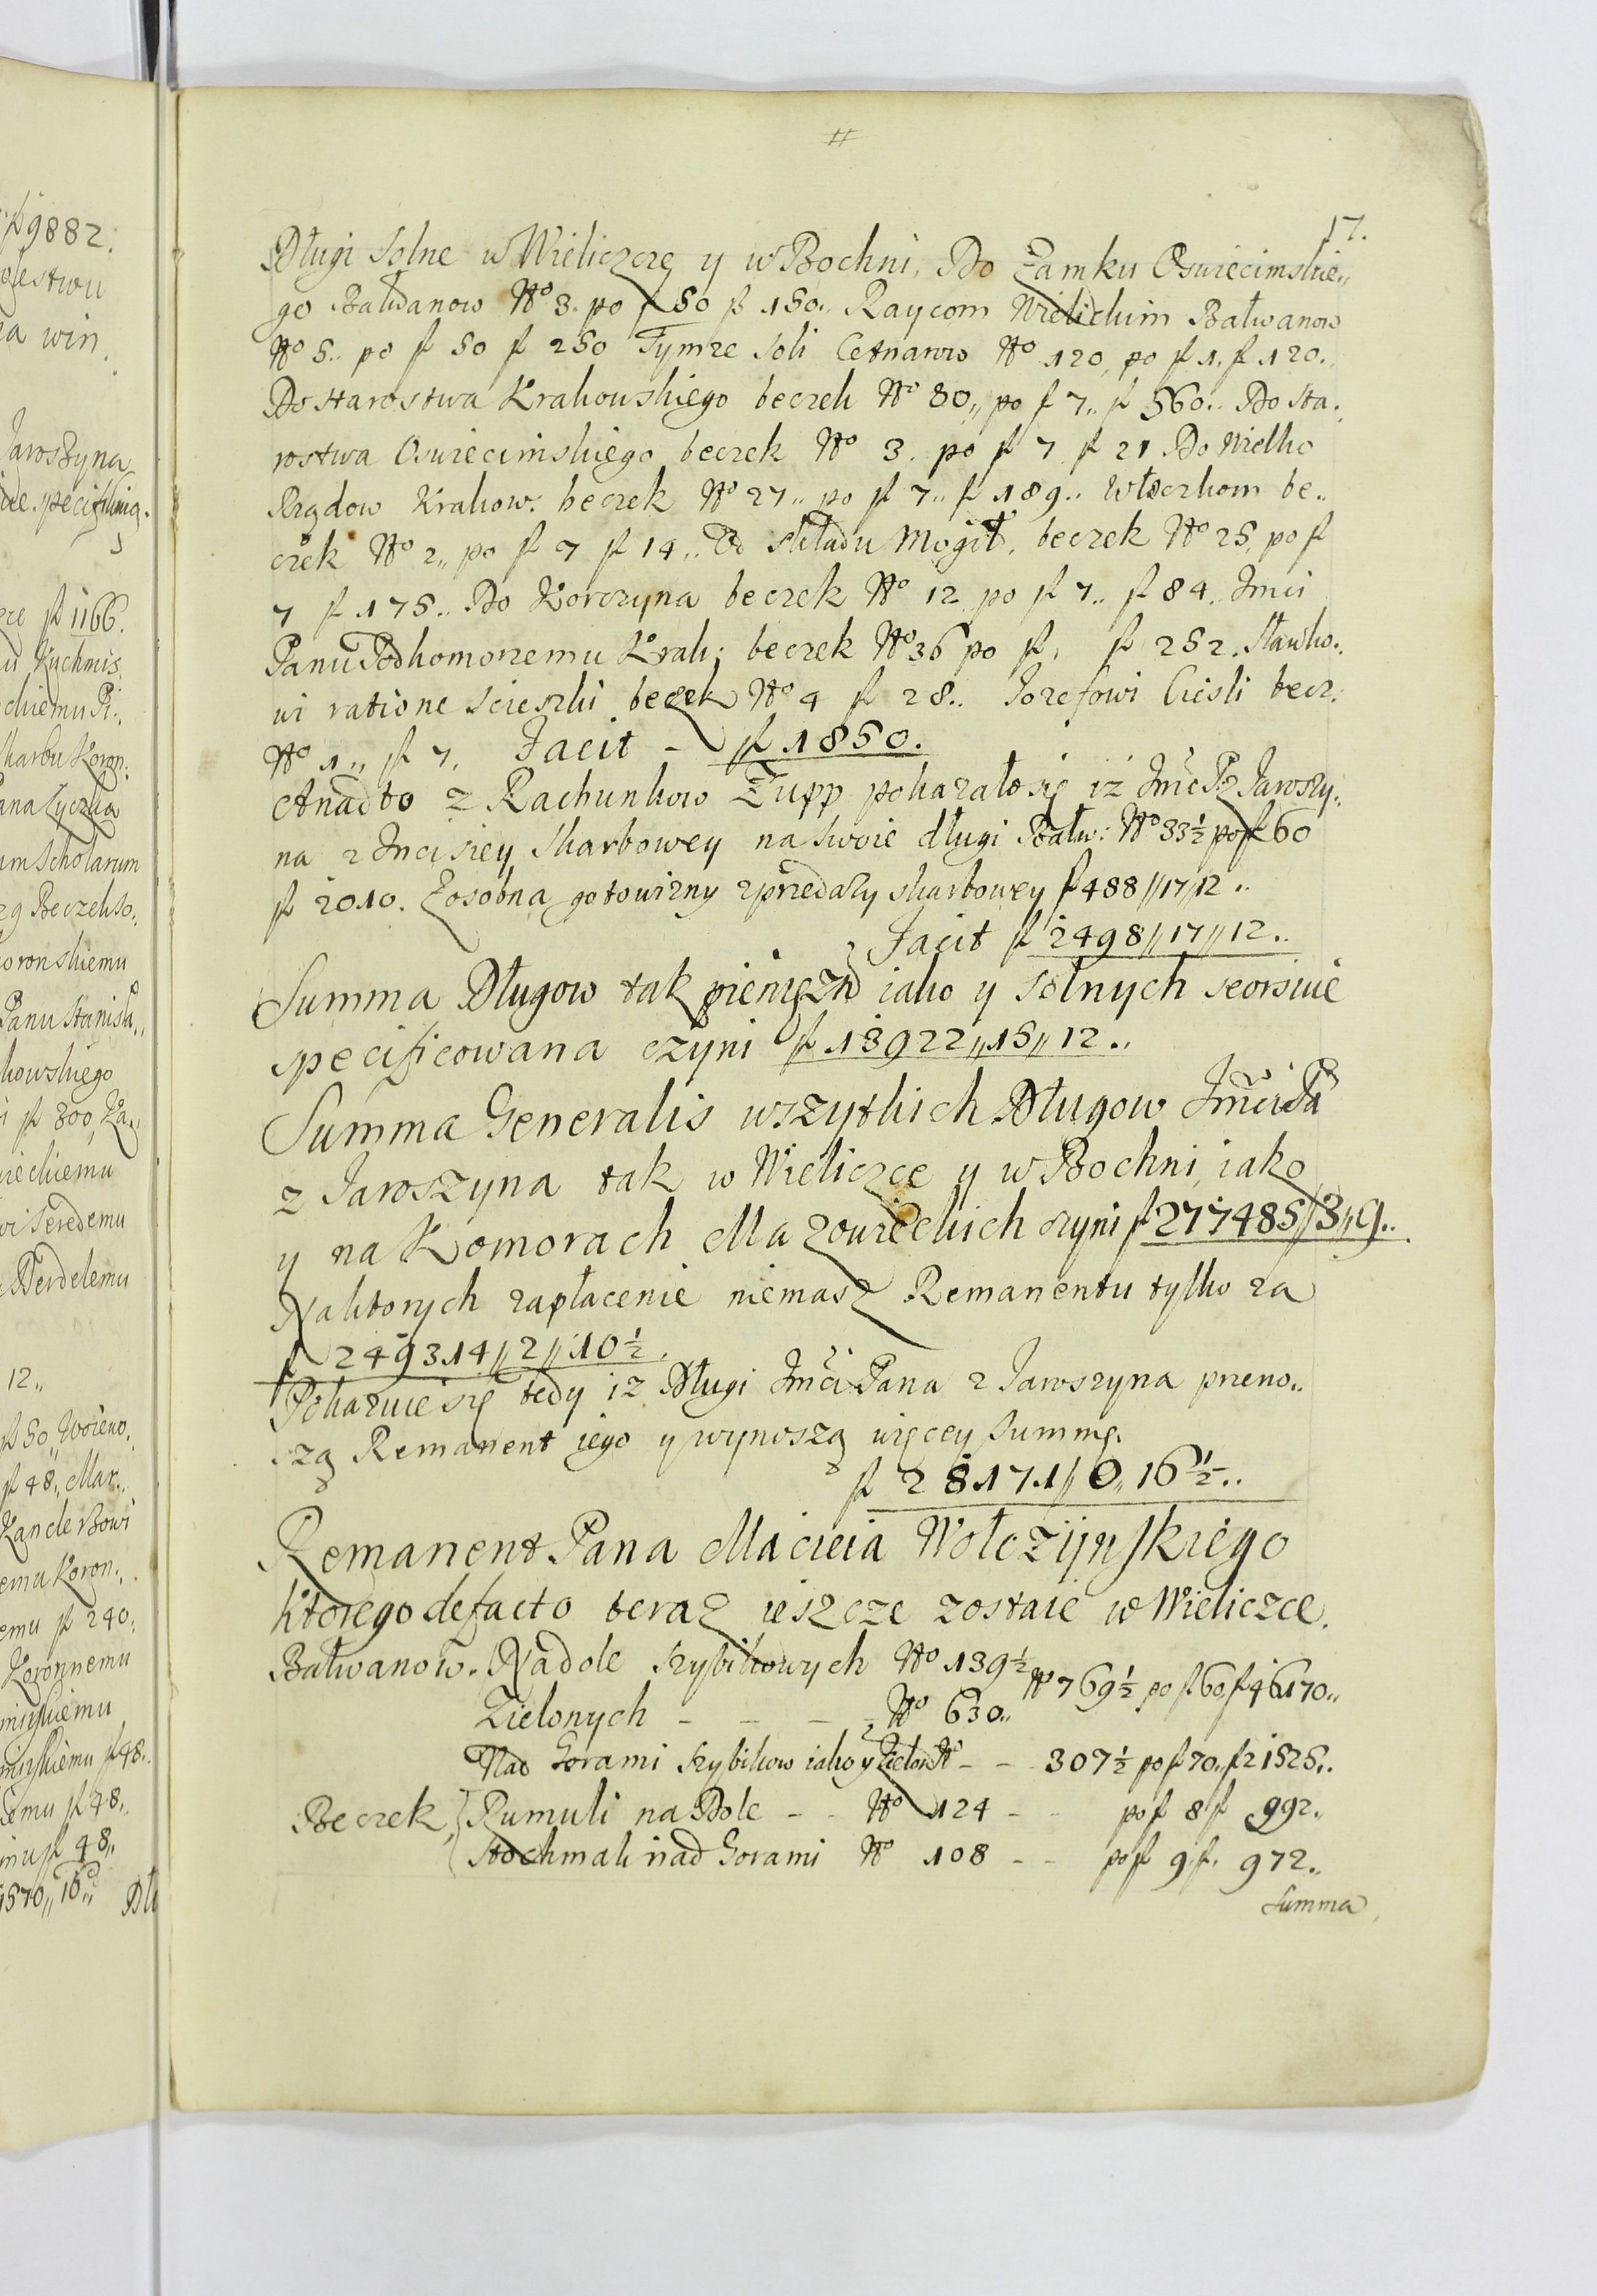 17.
Długi Solne w Wieliczcze y w Bochni, Do Zamku Oswiecimskie„
go Bałwanow No 3. po f 50 f 150.. Raycom Wielickim Bałwanow
No 5.. po f 50 f 250 Tymze Soli Cetnarow No 120, po f 1, f 120..
Do Starostwa Krakowskiego beczek No 80„ po f 7„ f 560.. Do Sta:
rostwa Oswiecimskiego beczek No 3. po f 7 f 21 Do Wielko
Rządow Krakow: beczek No 27„ po f 7„ f 189.. Włoczkom be„
czek No 2„ po f 7 f 14.. Od składu Mogił, beczek No 25, po f
7 f 175.. Do Korczyna beczek No 12 po f 7„ f 84.. Jmci
Panu Podkomorzemu Krak: beczek No 36 po f, f 252. Sławko:
wi ratione scieszki beczek No 4 f 28.. Jozefowi Ciesli becz:
No 1„ f 7, Facit - f 1850.
Anadto z Rachunkow Zupp pokazało się iż Jmć P z Jaroszy:
na z Jncisiey Skarbowey na swoie długi Bałw: No 33½ po f 60
f 2010. Zosobna gotowizny zprzedaży skarbowey f 488//17//12..
Facit f 2498//17//12..
Summa Długow tak pieniężn iako y Solnych seorsiue
specificowana czyni f 13922„15„12..
Summa Generalis wszytkich Długow Jmci Pa
z Jaroszyna tak w Wieliczce y w Bochni iako
y na Komorach Mazowieckich czyni f 277485//3„9..
Naktorych zapłacenie niemasz Remanentu tylko za
f 249314//2//10½.
Pokazuie się tedy iz Długi Jmci Pana z Jaroszyna przeno„
szą Remanent iego y wynoszą więcey summę.
f 28171//0„16½..
Remanent Pana Macieia Wołczijnskiego
ktorego defacto teraz ieszcze zostaie w Wieliczce.
Bałwanow. Nadole Szybikowych No 139½
No 769½ po f 60 f 46170„
Zielonych - - - No 630„
Nad Gorami Szybikow iako y Zielon No - - 307½ po f 70„ f 21525..
Beczek Rumuli na Dole - - No 124 - - po f 8 f 992..
Stochmali nad Gorami No 108 - - po f 9 f. 972..
Summa
f 9882.
win
Jaroszyna
f 1166.
Kuchmis
Skarbu Koron:
Scholarum
29 Beczek So:
oronskiemu
Panu Stanisła„
kowskiego
f 300, Za„
Seredemu
Perdelemu
12„
f 50„ Woieno.
f 48„ Mar„
Koron.
emu f 240.
Koronnemu
f 48„
emu f 48„
f 48„
Dłu